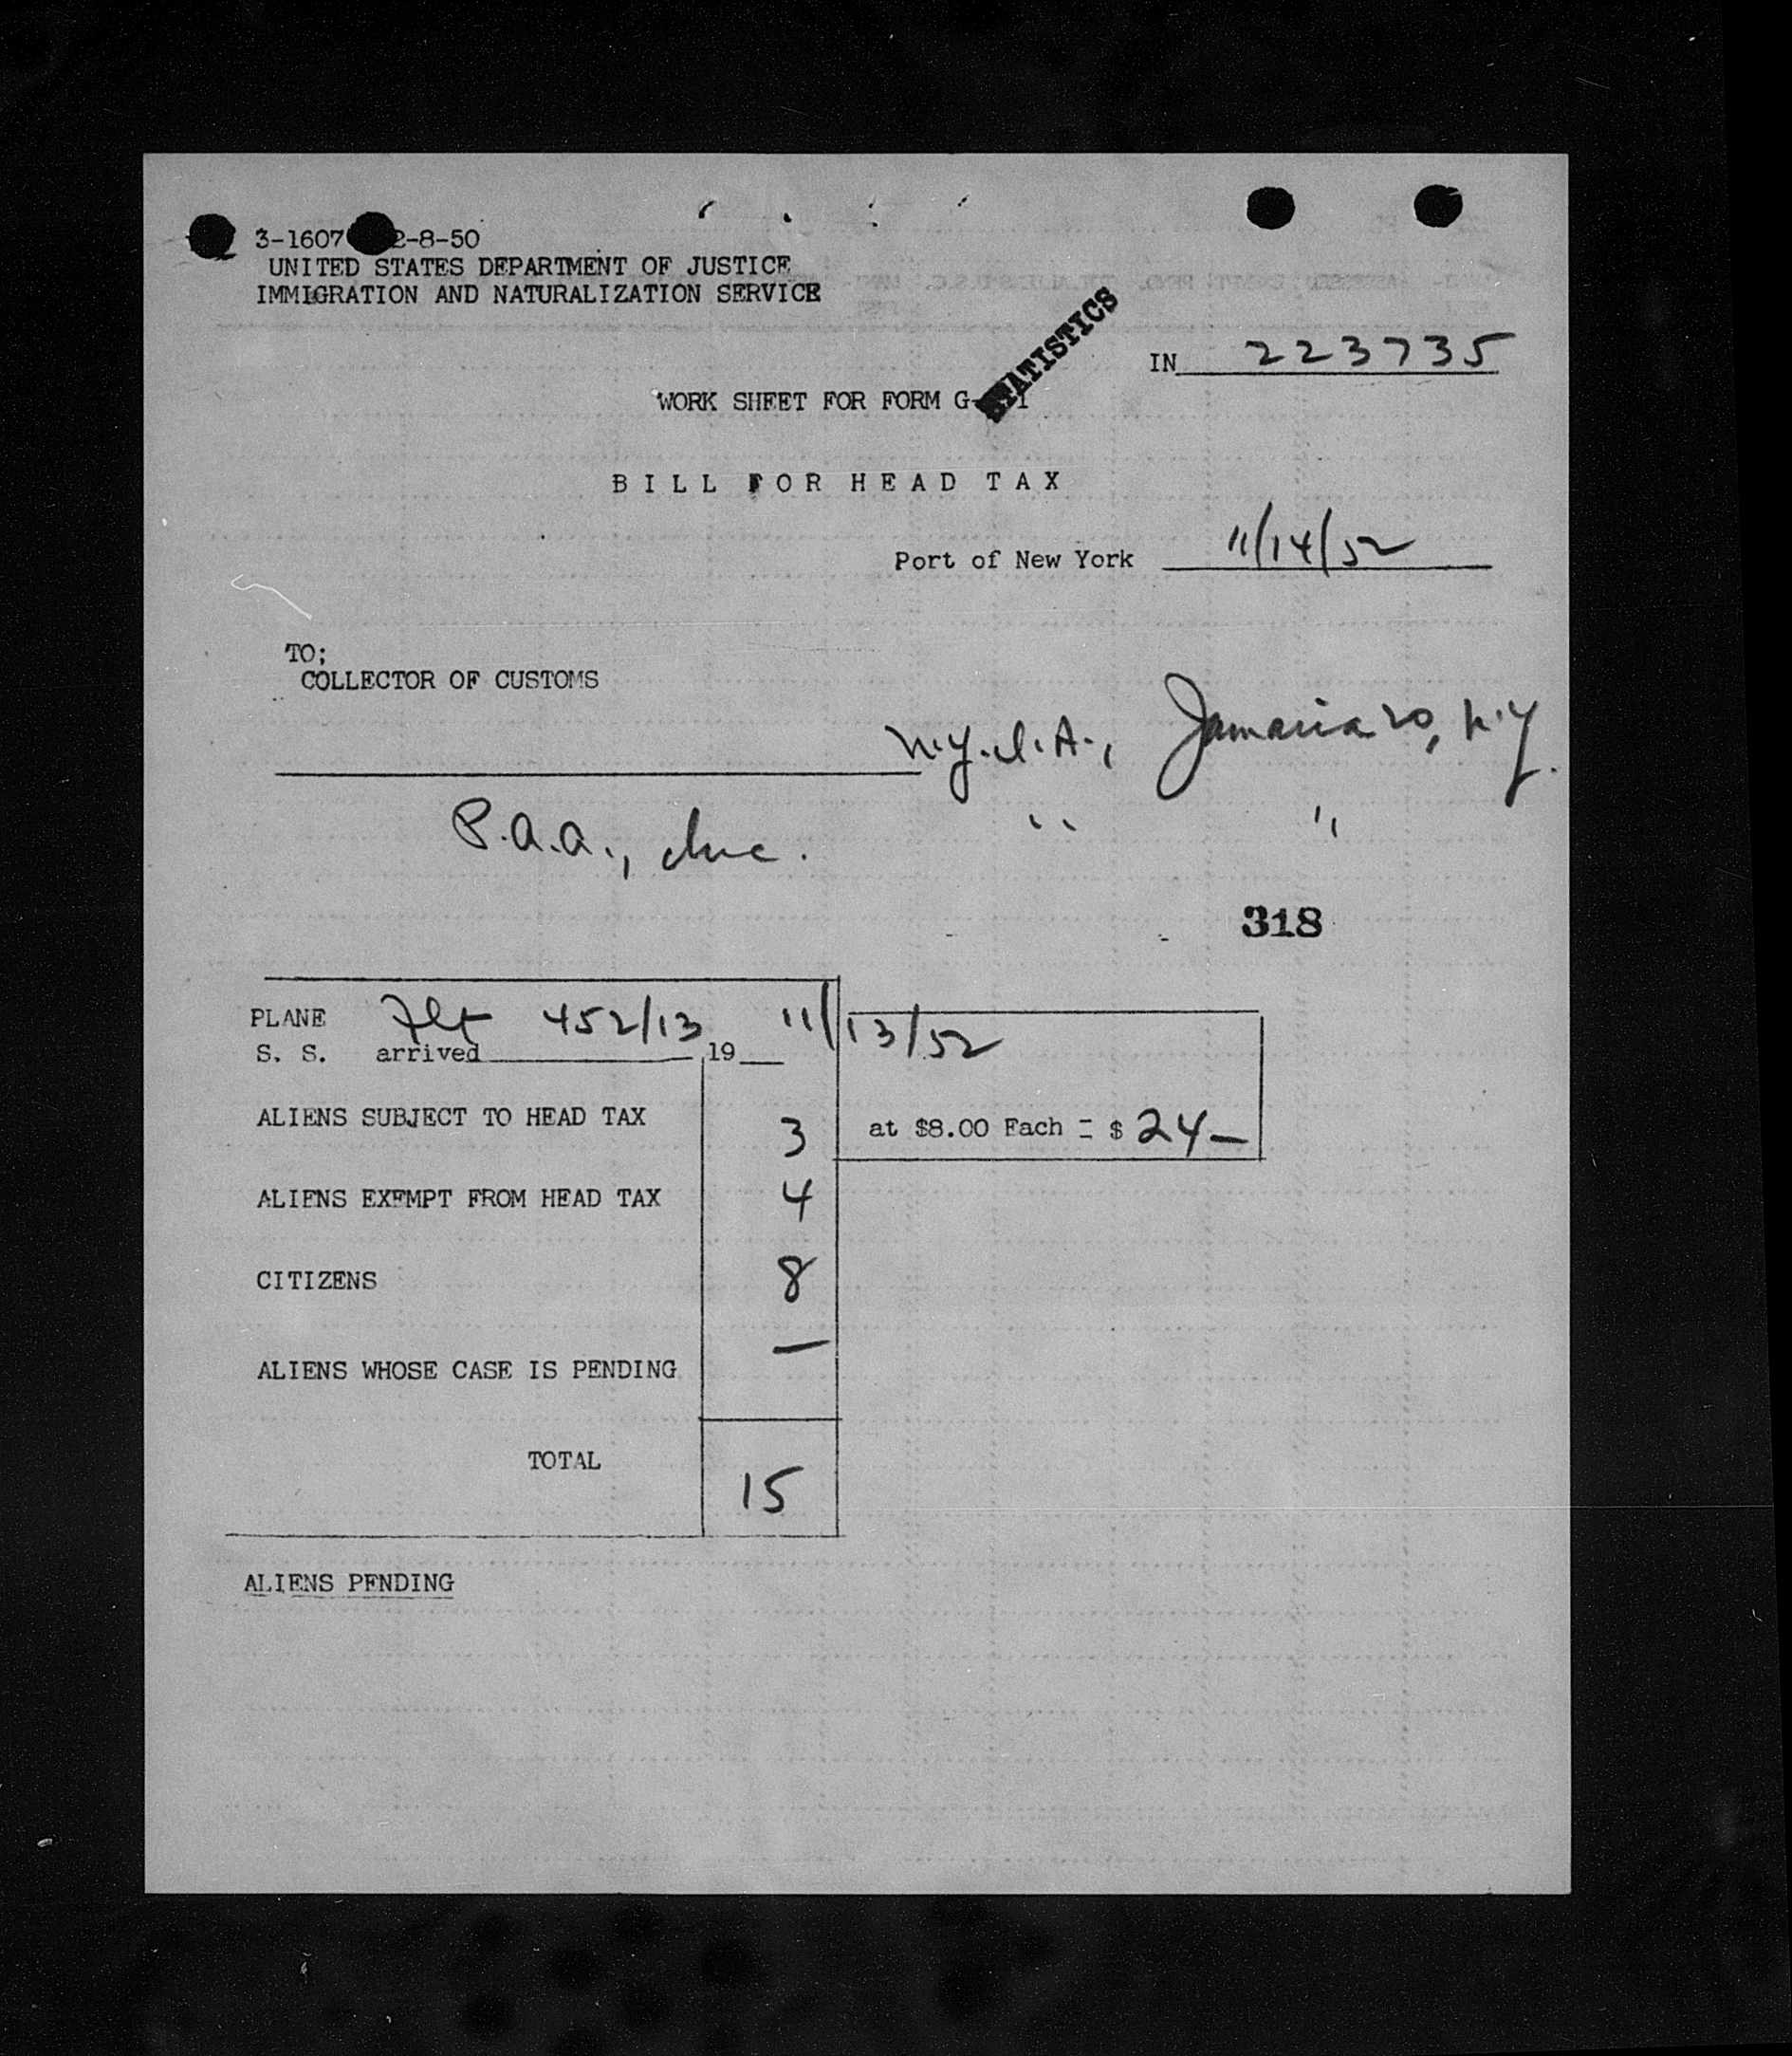 3-1607 2-8-50
UNITED STATES DEPARTMENT OF JUSTICE
IMMIGRATION AND NATURALIZATION SERVICE
STATISTICS
IN 223735
WORK SHEET FOR FORM G-
BILL FOR HEAD TAX
Port of New York 11/14/52
TO;
COLLECTOR OF CUSTOMS
N.Y.I.A., Jamaica 20, N.Y.
P.A.A., Inc. " "
318
PLANE Flt 452/13 11/13/52
S. S. arrived ,19
ALIENS SUBJECT TO HEAD TAX 3 at $8.00 Each = $ 24—
ALIENS EXEMPT FROM HEAD TAX 4
CITIZENS 8
ALIENS WHOSE CASE IS PENDING —
TOTAL 15
ALIENS PENDING